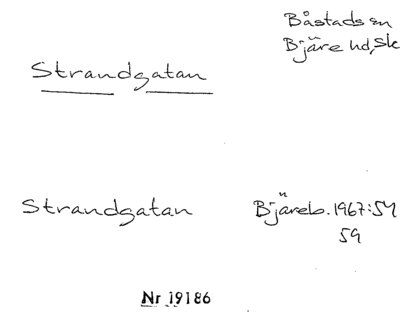 Båstads sn
Bjäre hd, Sk
Strandgatan
Strandgatan Bjäreb. 1967:54
59
Nr 19186